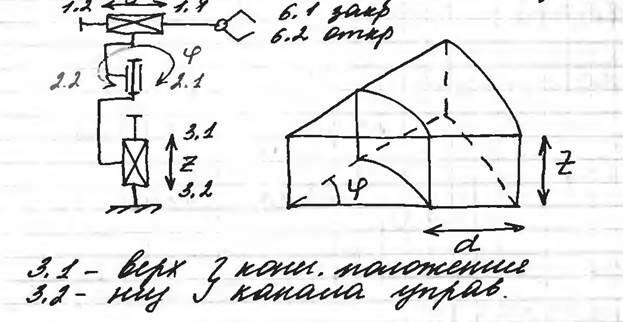 1.2 1.1
6.1 закр
6.2 откр
φ
2.2 2.1
3.1
Z
3.2
φ
Z
d
3.1 - верх } конц. положение
3.2 - низ } канала управ.